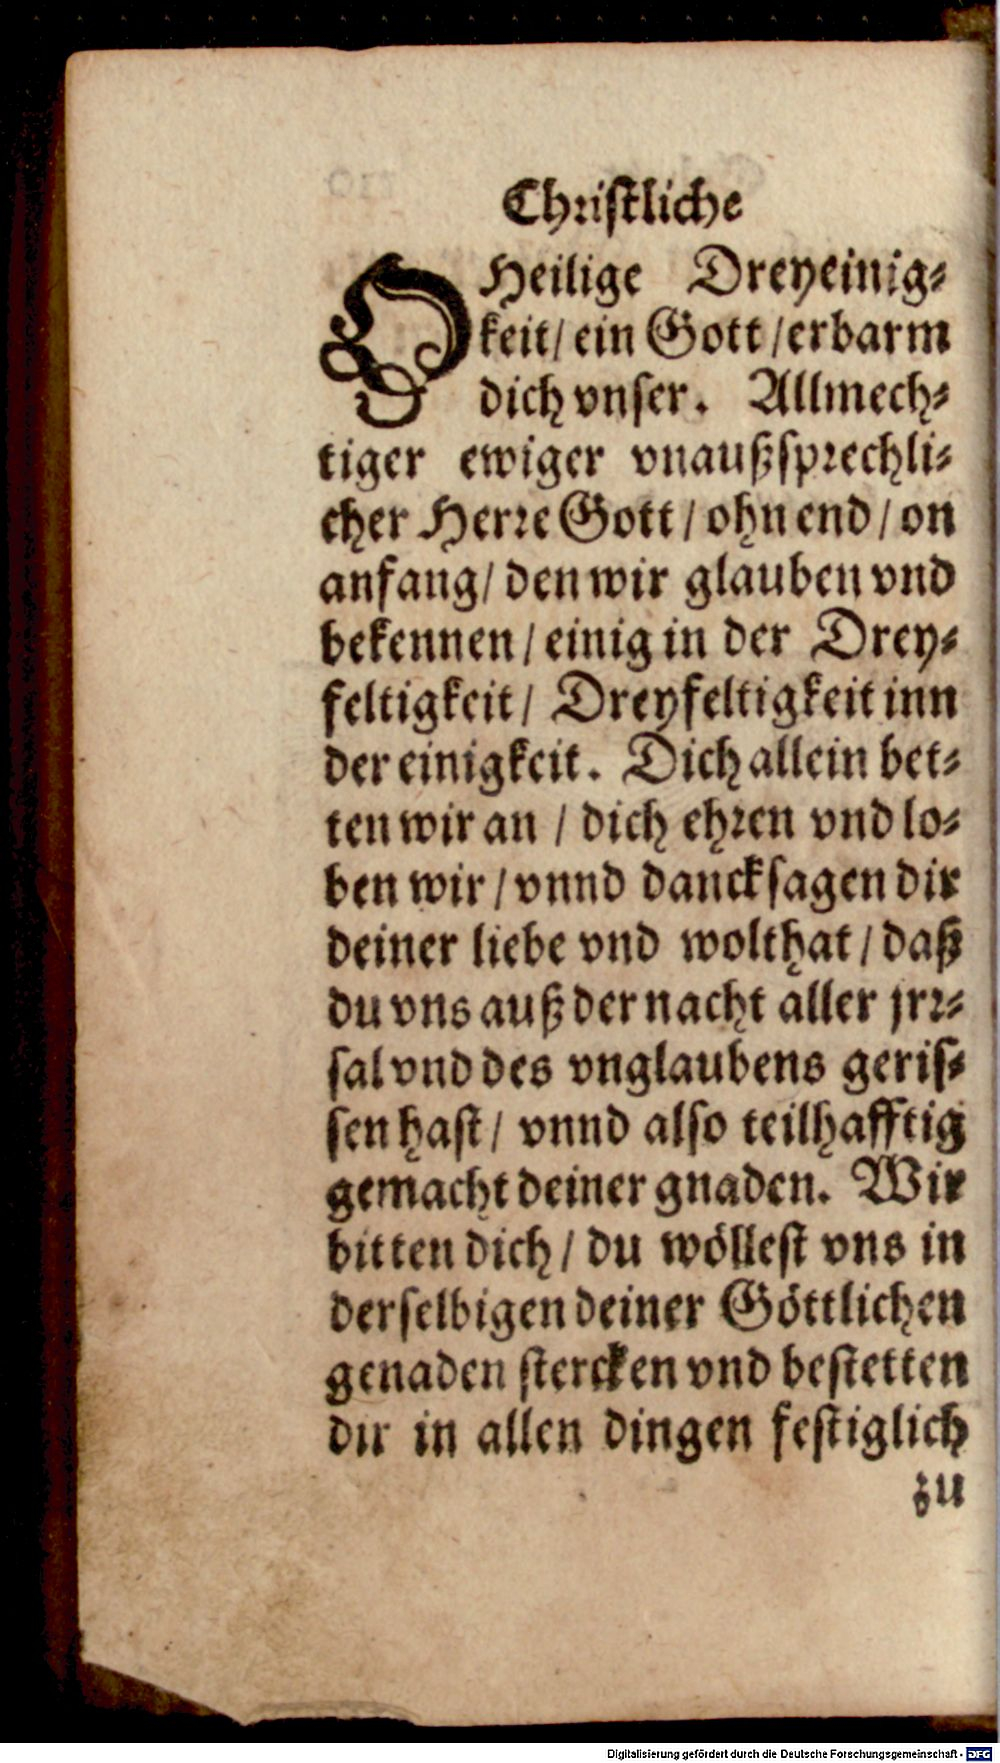 Christliche
O Heilige Dreyeinig⸗
keit / ein Gott / erbarm
dich vnser. Allmech⸗
tiger ewiger vnaußsprechli⸗
cher Herre Gott / ohn end / on
anfang / den wir glauben vnd
bekennen / einig in der Drey⸗
feltigkeit / Dreyfeltigkeit inn
der einigkeit. Dich allein bet⸗
ten wir an / dich ehren vnd lo⸗
ben wir / vnnd dancksagen dir
deiner liebe vnd wolthat / daß
du vns auß der nacht aller jrr⸗
sal vnd des vnglaubens geris⸗
sen hast / vnnd also teilhafftig
gemacht deiner gnaden. Wir
bitten dich / du wöllest vns in
derselbigen deiner Göttlichen
genaden stercken vnd bestetten
dir in allen dingen festiglich
zu
Digitalisierung gefördert durch die Deutsche Forschungsgemeinschaft - DFG